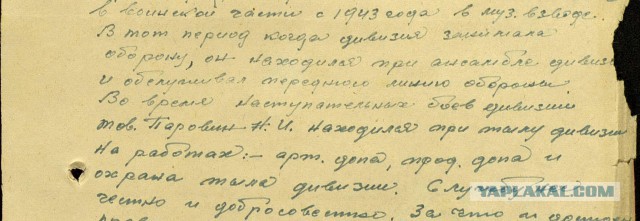 в воинской части с 1943 года в муз. взводе.
В тот период когда дивизия занимала
оборону, он находился при ансамбле дивизи
и обслуживал переднюю линию обороны.
Во время наступательных боев дивизии
тов. Паровин Н.И. находился при тылу дивизии
на работах:- арт. допа, прод. допа и
охрана тыла дивизии. Служ
честно и добросовестно. За что и
YAPLAKAL.COM